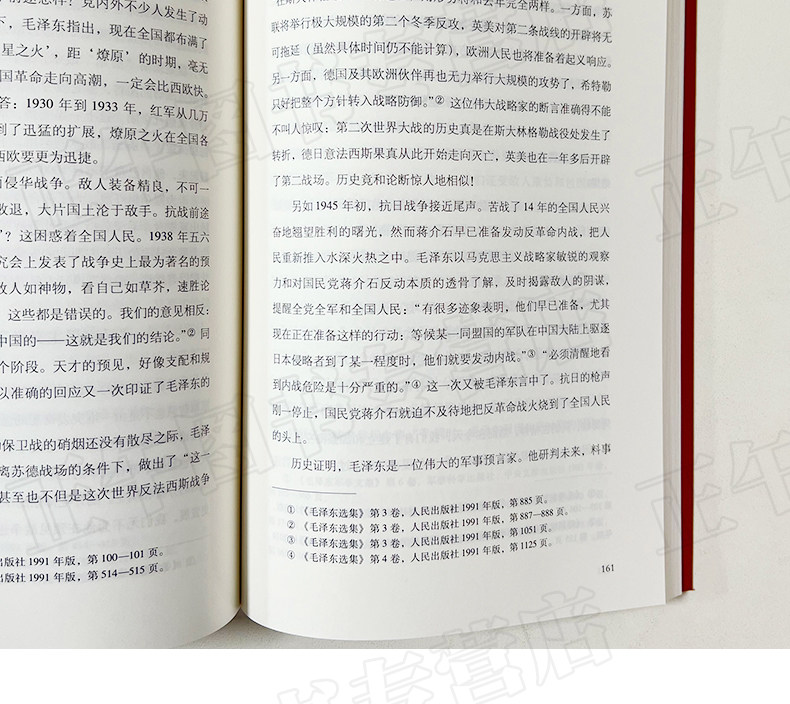 前途怎样？党内外不少人发生了动
下，毛泽东指出，现在全国都布满了
星之火’，距‘燎原’的时期，毫无
国革命走向高潮，一定会比西欧快。
答：1930 年到 1933 年，红军从几万
到了迅猛的扩展，燎原之火在全国各
西欧要更为迅捷。
侵华战争。敌人装备精良，不可一
败退，大片国土沦于敌手。抗战前途
”？这困惑着全国人民。1938 年五六
究会上发表了战争史上最为著名的预
敌人如神物，看自己如草芥，速胜论
这些都是错误的。我们的意见相反：
中国的——这就是我们的结论。”② 同
个阶段。天才的预见，好像支配和规
以准确的回应又一次印证了毛泽东的
保卫战的硝烟还没有散尽之际，毛泽
离苏德战场的条件下，做出了“这一
甚至也不但是这次世界反法西斯战争
出版社 1991 年版，第 100—101 页。
出版社 1991 年版，第 514—515 页。
和去年完全两样。一方面，苏
联将举行极大规模的第二个冬季反攻，英美对第二条战线的开辟将无
可拖延（虽然具体时间仍不能计算），欧洲人民也将准备着起义响应。
另一方面，德国及其欧洲伙伴再也无力举行大规模的攻势了，希特勒
只好把整个方针转入战略防御。”② 这位伟大战略家的断言准确得不能
不叫人惊叹：第二次世界大战的历史真是在斯大林格勒战役处发生了
转折，德日意法西斯果真从此开始走向灭亡，英美也在一年多后开辟
了第二战场。历史竟和论断惊人地相似！
另如 1945 年初，抗日战争接近尾声。苦战了 14 年的全国人民兴
奋地翘望胜利的曙光，然而蒋介石早已准备发动反革命内战，把人
民重新推入水深火热之中。毛泽东以马克思主义战略家敏锐的观察
力和对国民党蒋介石反动本质的透骨了解，及时揭露敌人的阴谋，
提醒全党全军和全国人民：“有很多迹象表明，他们早已准备，尤其
现在正在准备这样的行动：等候某一同盟国的军队在中国大陆上驱逐
日本侵略者到了某一程度时，他们就要发动内战。”③ “必须清醒地看
到内战危险是十分严重的。”④ 这一次又被毛泽东言中了。抗日的枪声
刚一停止，国民党蒋介石就迫不及待地把反革命战火烧到了全国人民
的头上。
历史证明，毛泽东是一位伟大的军事预言家。他研判未来，料事
① 《毛泽东选集》第 3 卷，人民出版社 1991 年版，第 885 页。
② 《毛泽东选集》第 3 卷，人民出版社 1991 年版，第 887—888 页。
③ 《毛泽东选集》第 3 卷，人民出版社 1991 年版，第 1051 页。
④ 《毛泽东选集》第 4 卷，人民出版社 1991 年版，第 1125 页。
161